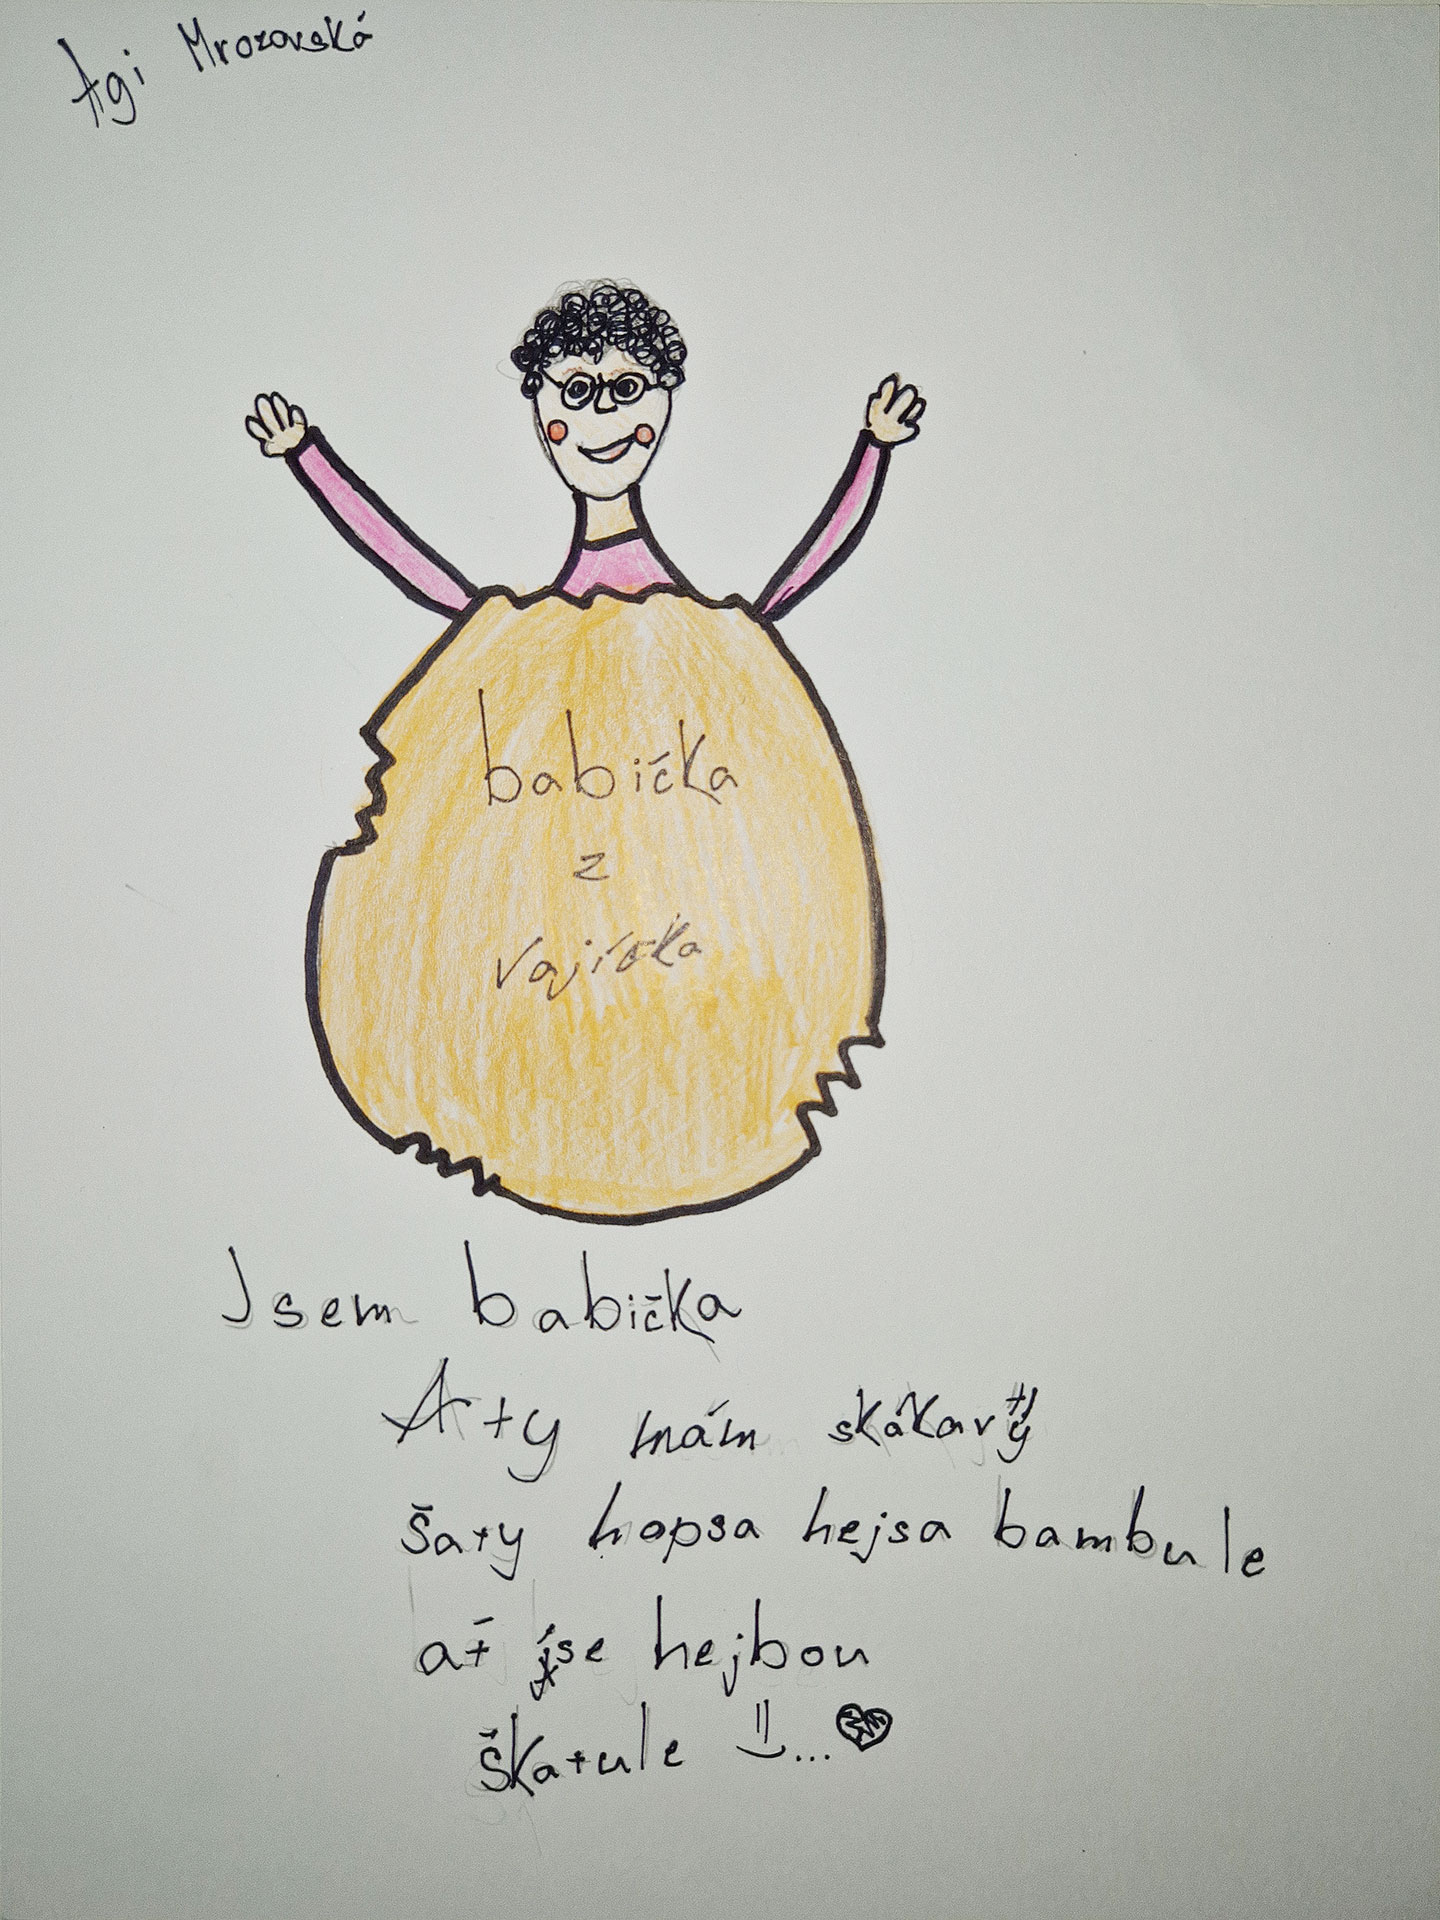 Agi Mrozovská
babička
z
vajíčka
Jsem babička
A+y mám skákavý
šaty hopsa hejsa bambule
ať se hejbou
škatule =)...